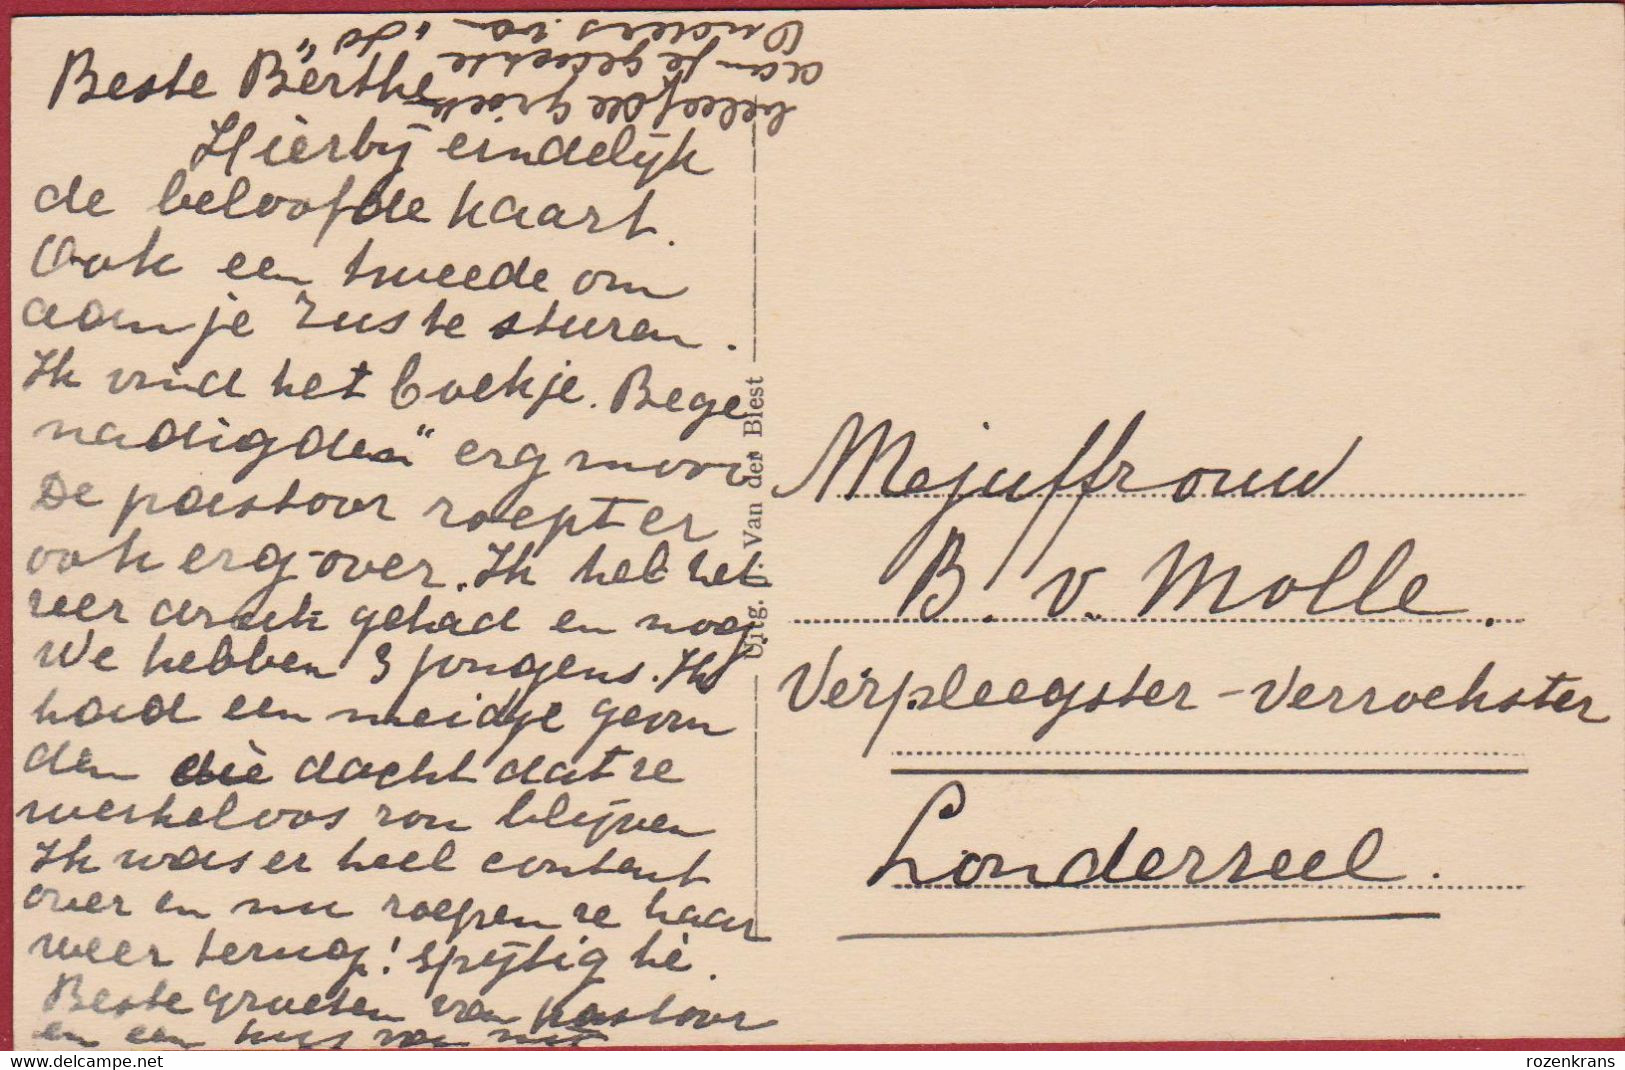 Beste Berthe
Hierbij eindelijk
de beloofde kaart.
Ook een tweede om
aan je zuste sturen.
Ik vind het boekje. Bege
nadigden" erg mooi
De pastoor roept er
ook erg over. Ik heb het
zeer druk gehad en nog
We hebben 3 jongens. Ik
had een meidje gevon
den die dacht dat ze
werkeloos zou blijven
Ik was er heel content
over en nu roepen ze haar
weer terug! Spijtig hè.
Beste groeten van pastoor
en een kus van
beleefde groeten
aan je geachte
Ouders van „Jo"
Uitg. Van der Biest
Mejuffrouw
B. v. Molle.
Verpleegster-Verroekster
Londerzeel.
delcampe.net
rozenkrans